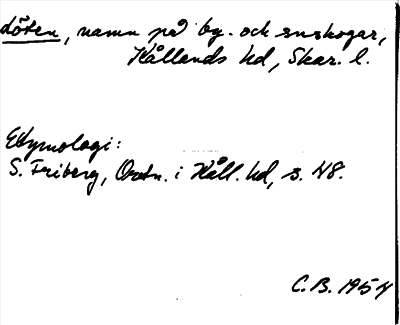 döten, namn på by- och snskogar,
Kållands hd, Skar. l.
Etymologi:
S. Friberg, Ortn. i Kåll. hd, s. 48.
C. B. 1954